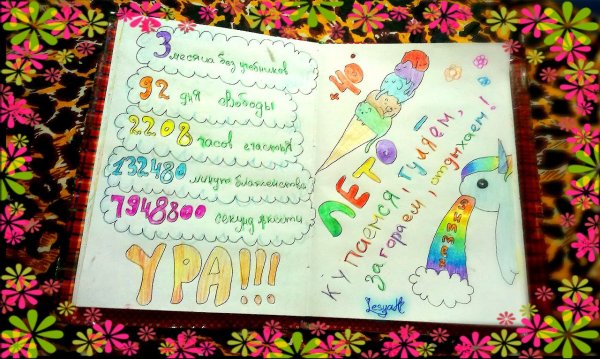 3 месяца без учебников
92 дня свободы
2208 часов счастья
132480 минут блаженства
7948800 секунд
УРА!!!
+40°
ЛЕТО -
купаемся, гуляем,
загораем, отдыхаем!